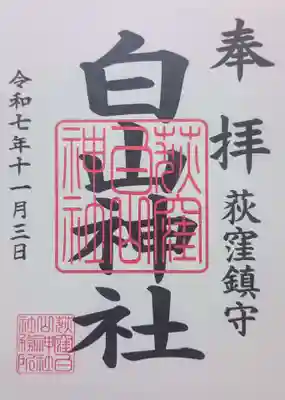 奉拝
荻窪鎮守
白山神社
荻窪
白山
神社
令和七年十一月三日
荻窪白
山神社
社務所